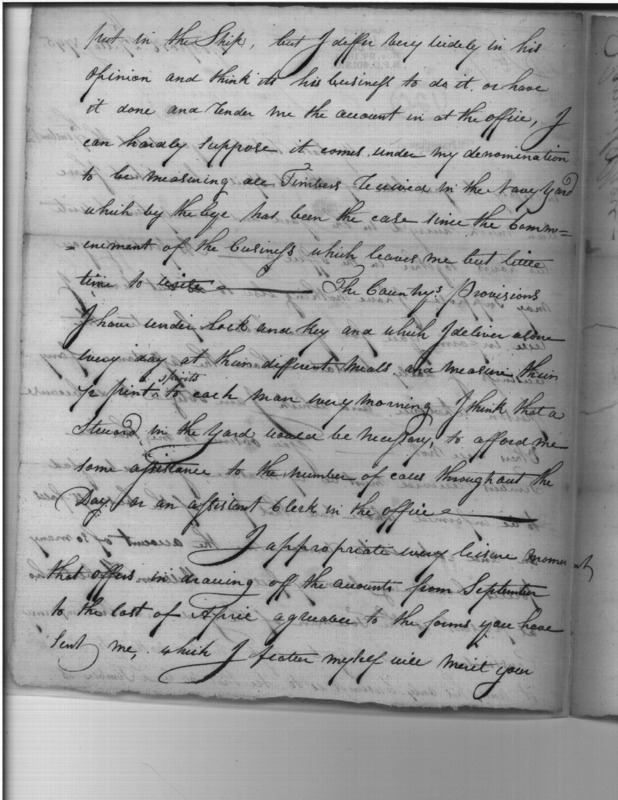 put in the Ship, but I differ very widely in his
opinion and think its his business to do it, or have
it done and render me the account in at the office, I
can hardly suppose it comes under my denomination
to be measuring all Timbers received in the Navy Yard
which by the bye has been the case since the Comm=
=encment of the business which leaves me but little
time to write — The Country's Provisions
I have under Lock and Key and which I deliver alone
every day at their different Meals and measure their
½ pint a spirits to each man every morning I think that a
Steward in the Yard would be necessary, to afford me
some assistance to the number of calls throughout the
Day, or an assistant Clerk in the office —
I appropriate every leisure moment
that offers in drawing off the accounts from September
to the last of April agreeable to the forms you have
sent me, which I flatter myself will merit your